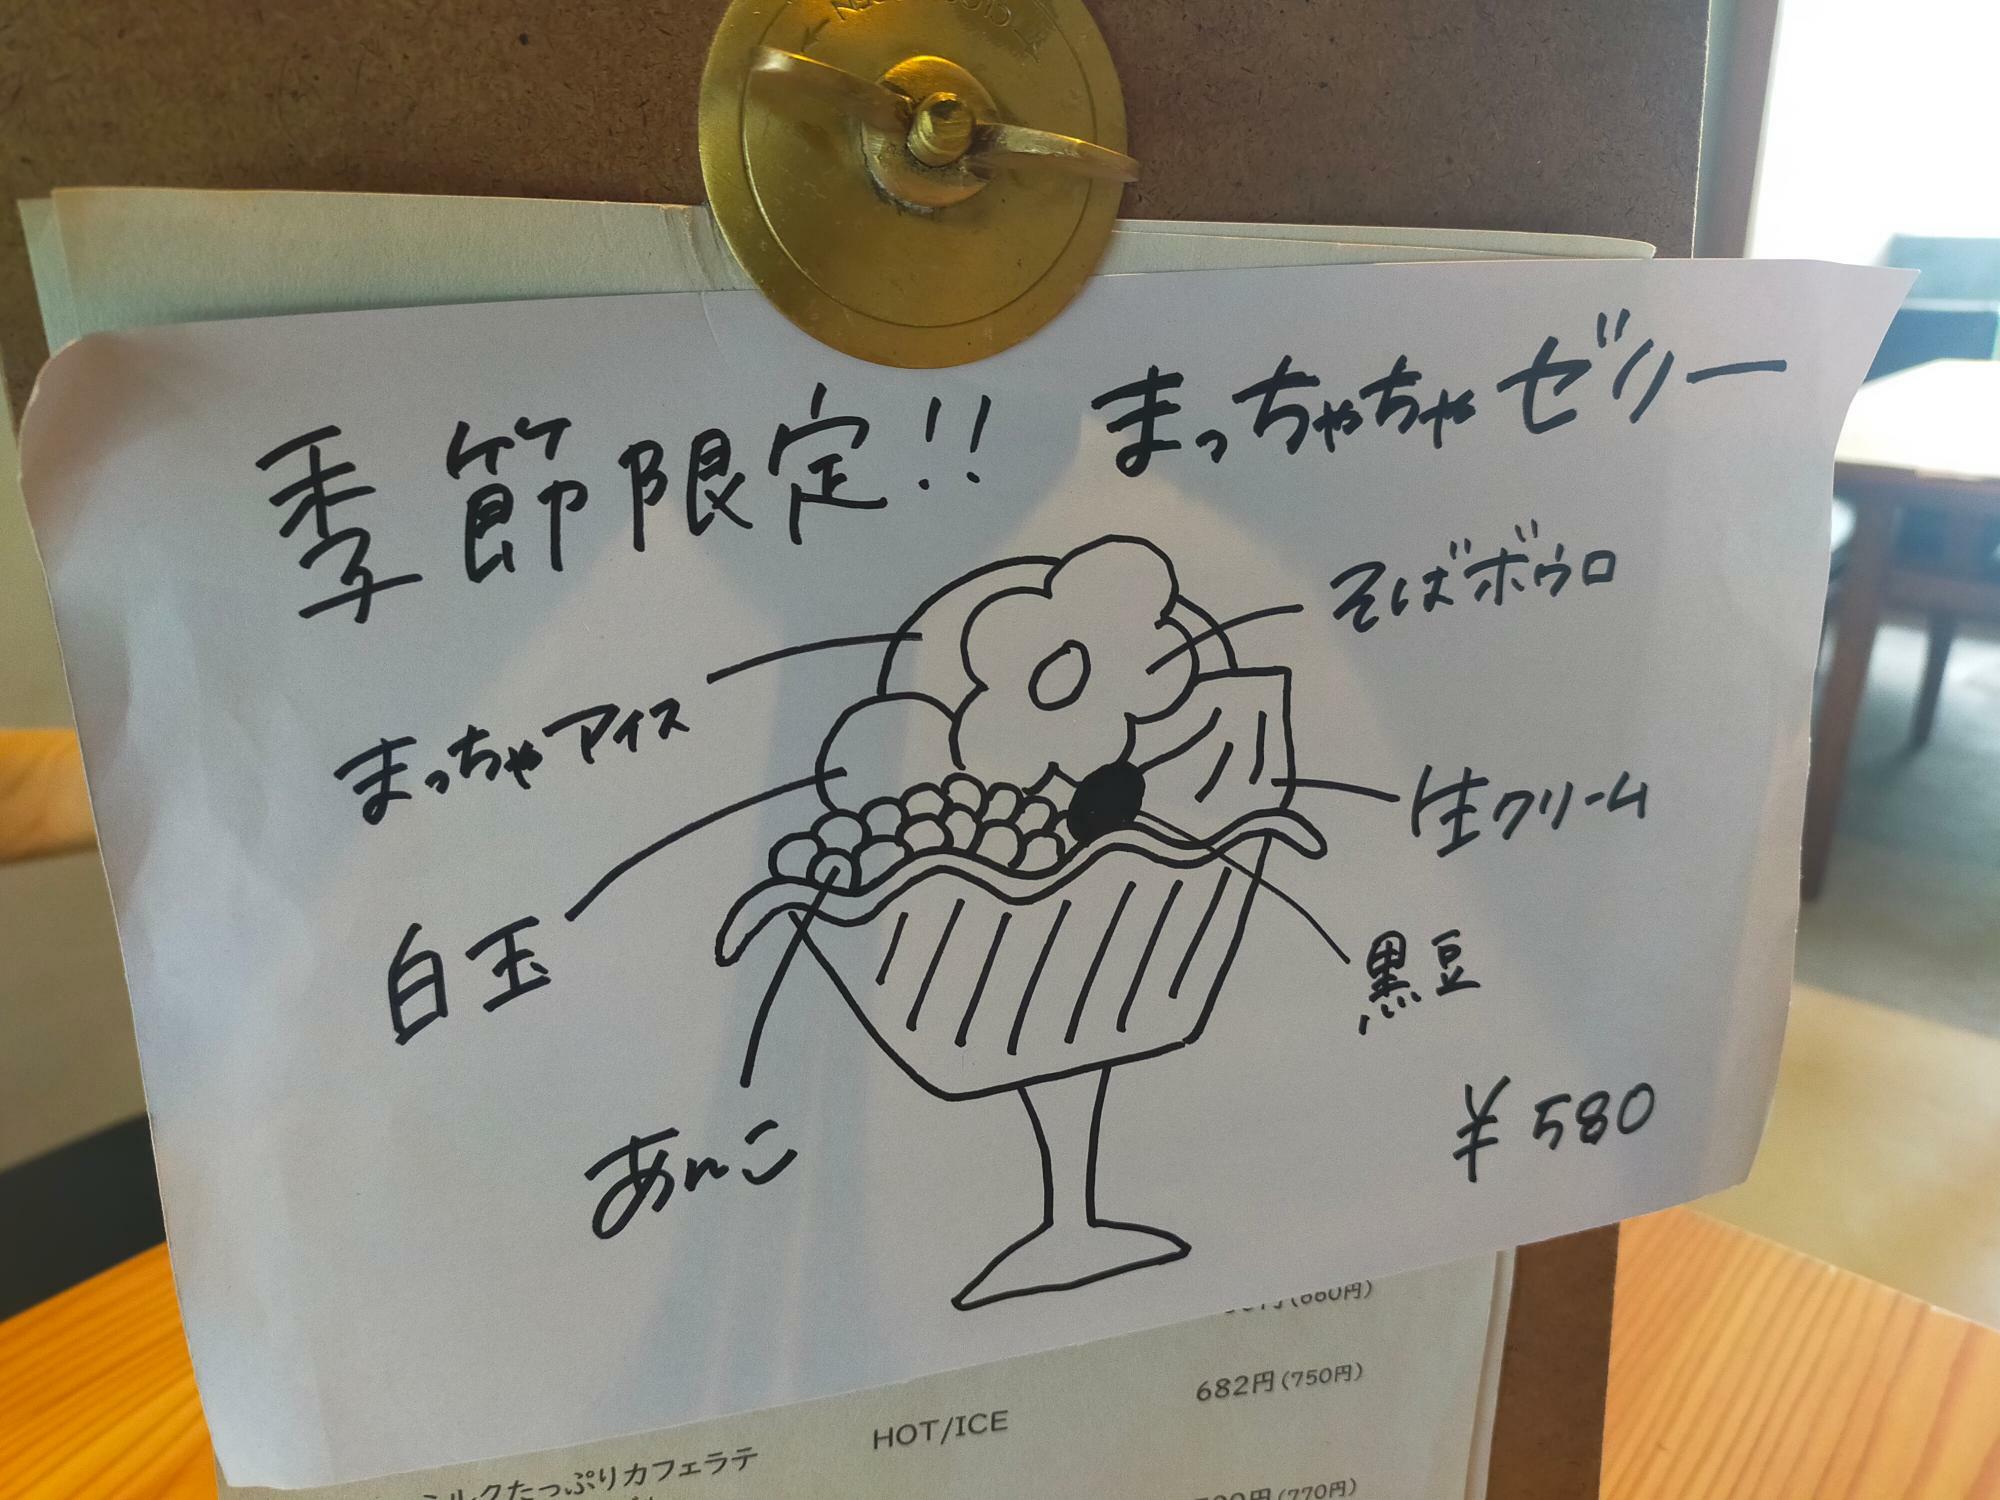 季節限定!! まっちゃちゃゼリー
そばボウロ
まっちゃアイス
生クリーム
白玉
黒豆
あんこ
¥580
(660円)
682円(750円)
HOT/ICE
ミルクたっぷりカフェラテ
(770円)